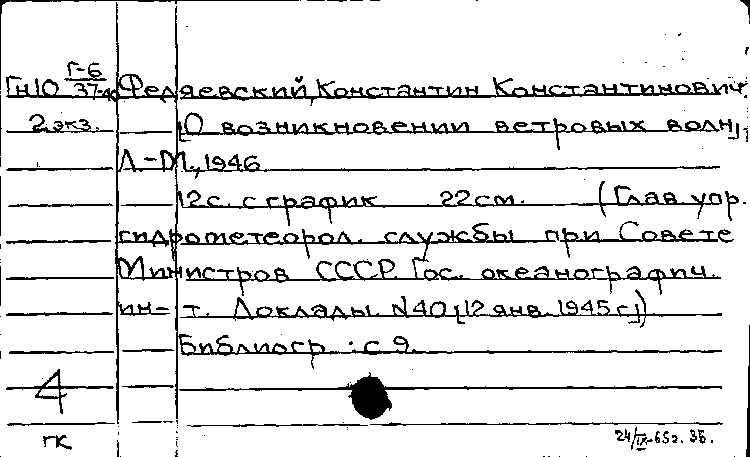 Г-6
Гн10 37-40 Федяевский, Константин Константинович
2 экз. [О возникновении ветровых волн],
Л.-М., 1946
12с. с график 22см. (Глав. упр.
гидрометеорол. службы при Совете
Министров СССР. Гос. океанографич.
ин-т. Доклады. N40 [12 янв. 1945 г.])
Библиогр.: с 9.
4
ГК
24/IX-65г. ЗБ.